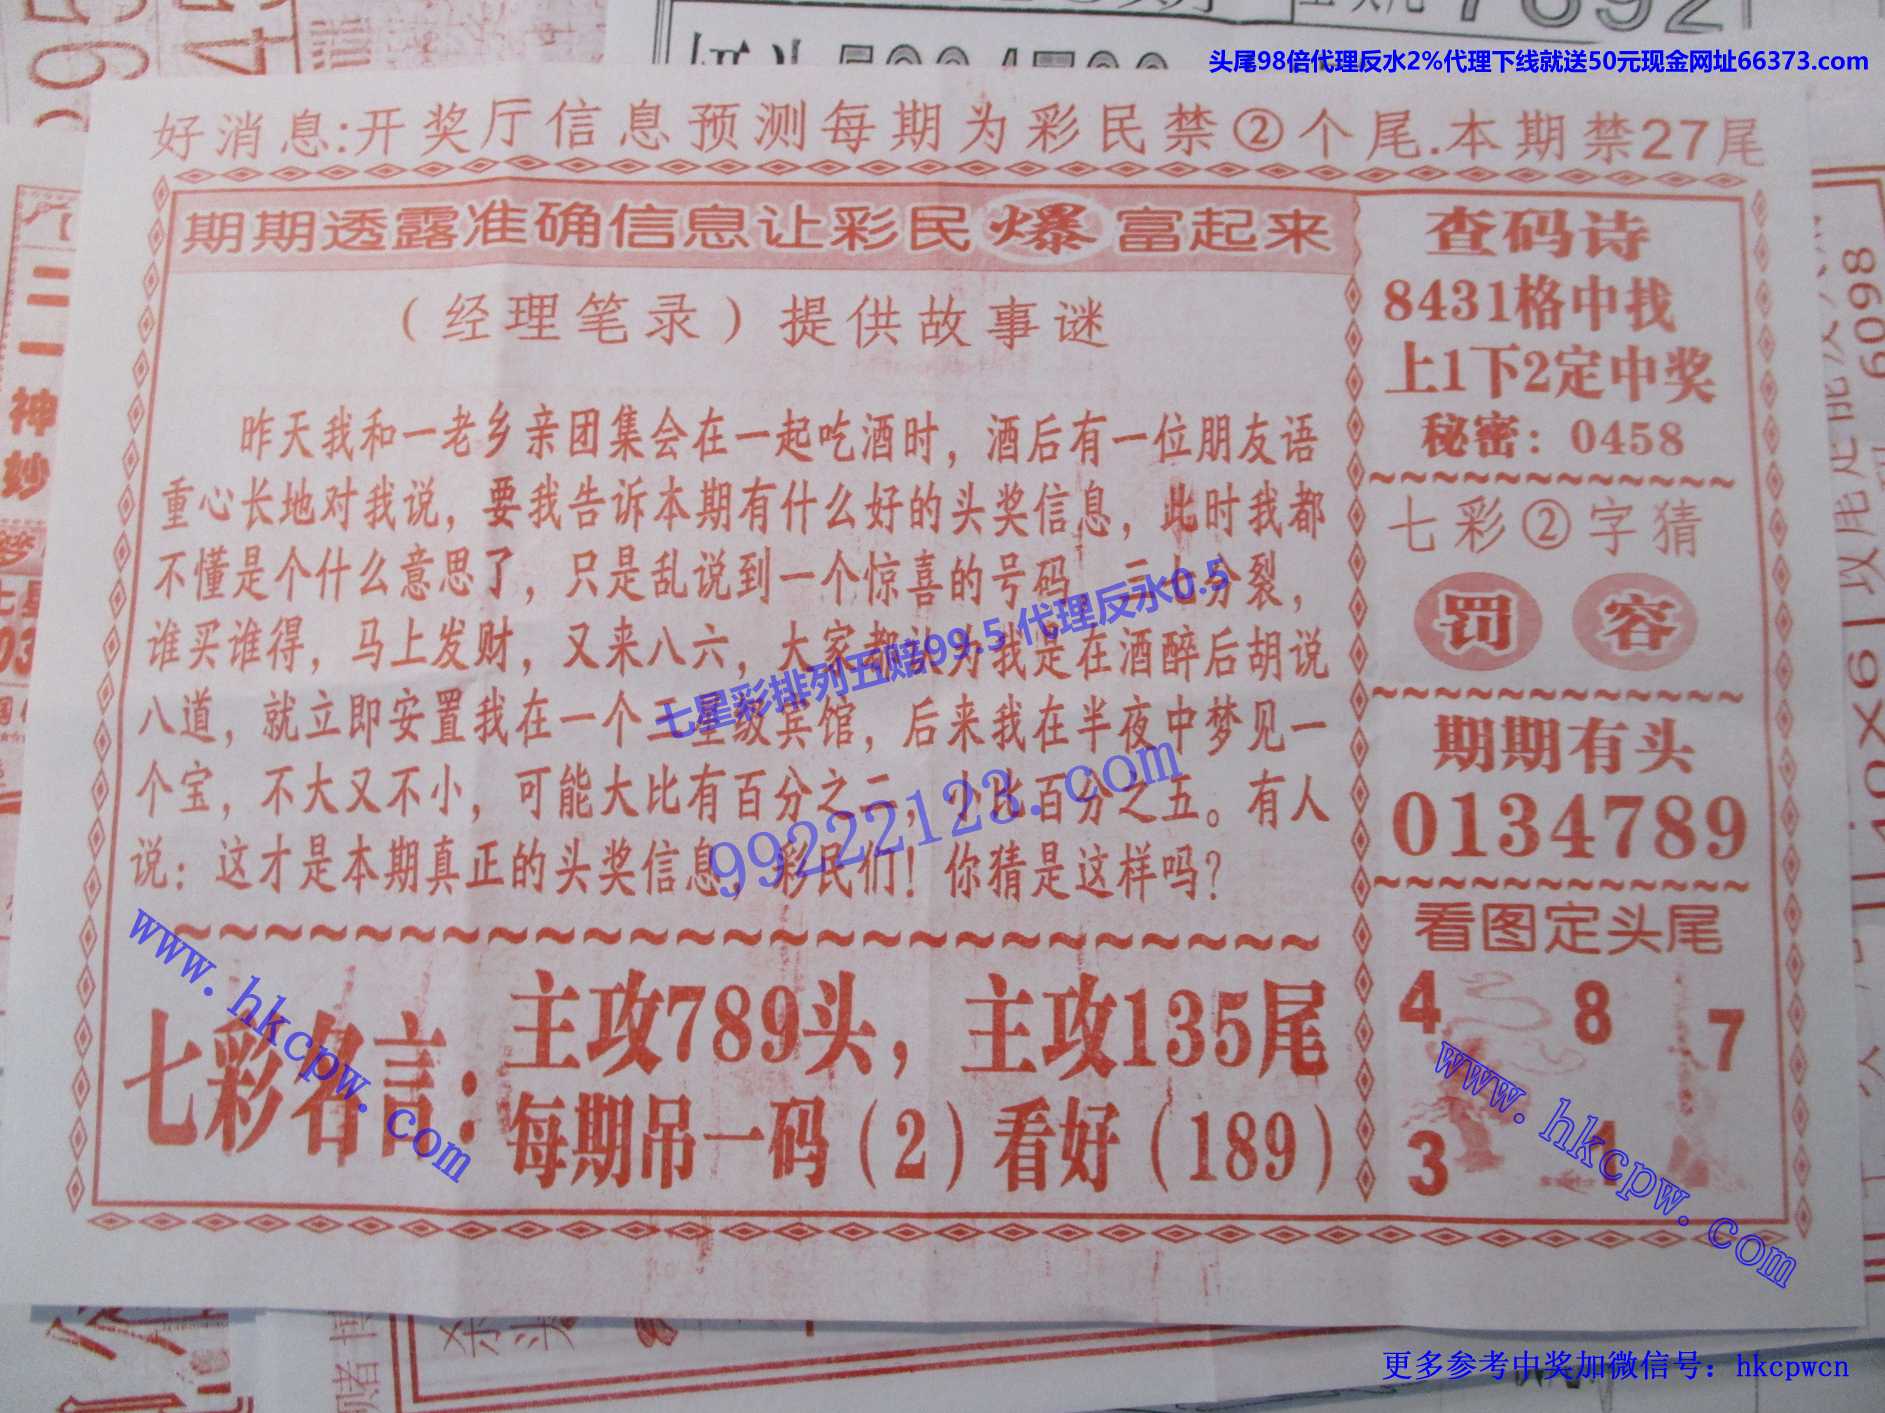 头尾98倍代理反水2%代理下线就送50元现金网址66373.com
好消息:开奖厅信息预测每期为彩民禁②个尾.本期禁27尾
期期透露准确信息让彩民爆富起来
（经理笔录）提供故事谜
昨天我和一老乡亲团集会在一起吃酒时，酒后有一位朋友语
重心长地对我说，要我告诉本期有什么好的头奖信息，此时我都
不懂是个什么意思了，只是乱说到一个惊喜的号码，三七分裂，
谁买谁得，马上发财，又来八六，大家都认为我是在酒醉后胡说
八道，就立即安置我在一个星级宾馆，后来我在半夜中梦见一
个宝，不大又不小，可能大比有百分之二，小比百分之五。有人
说：这才是本期真正的头奖信息，彩民们！你猜是这样吗？
七星彩排列五赔99.5 代理反水0.5
99222123.com
七彩名言：
主攻789头，主攻135尾
每期吊一码（2）看好（189）
www.hkcpw.com
查码诗
8431格中找
上1下2定中奖
秘密：0458
七彩②字猜
罚 容
期期有头
0134789
看图定头尾
4 8 7
3 1
www.hkcpw.com
二一神
6098
更多参考中奖加微信号：hkcpwcn